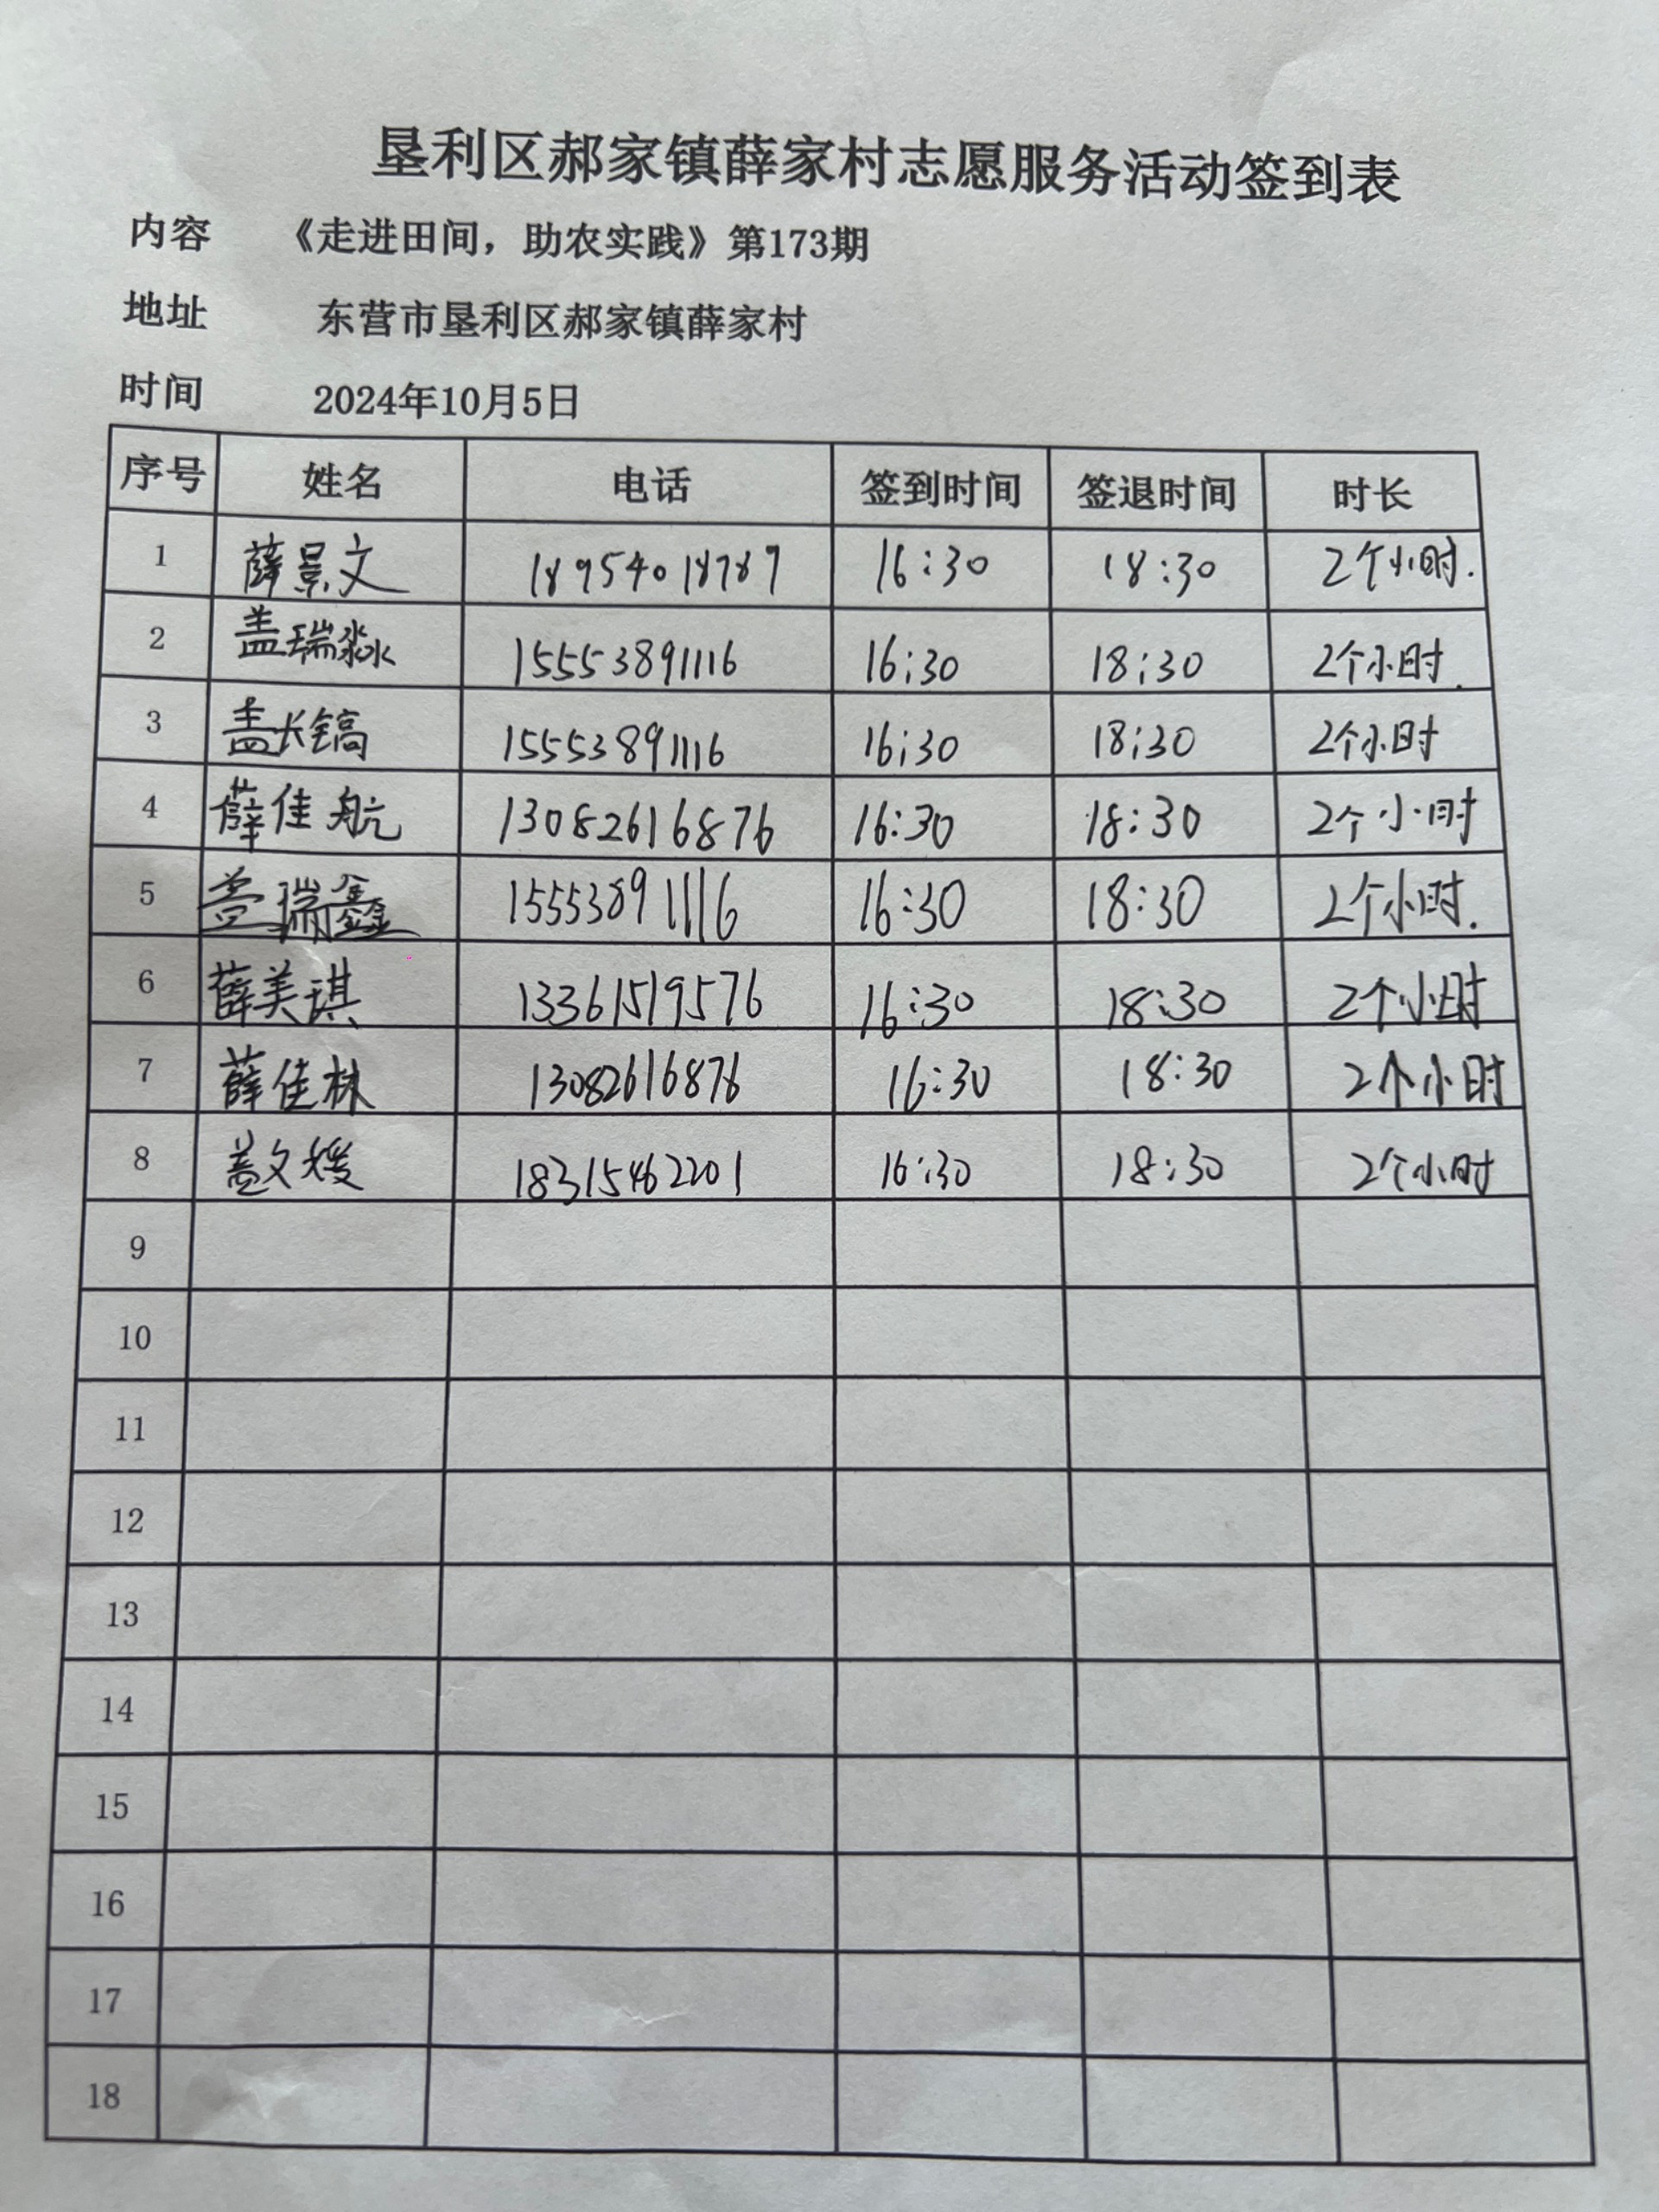 垦利区郝家镇薛家村志愿服务活动签到表
内容 《走进田间，助农实践》第173期
地址 东营市垦利区郝家镇薛家村
时间 2024年10月5日
序号 姓名 电话 签到时间 签退时间 时长
1 薛景文 18954018789 16:30 18:30 2个小时.
2 盖瑞淼 15553891116 16:30 18:30 2个小时.
3 盖长镐 15553891116 16:30 18:30 2个小时
4 薛佳航 13082616876 16:30 18:30 2个小时
5 盖瑞鑫 15553891116 16:30 18:30 2个小时.
6 薛美琪 13361519576 16:30 18:30 2个小时
7 薛佳林 13082616876 16:30 18:30 2个小时
8 盖文媛 18315462201 16:30 18:30 2个小时
9
10
11
12
13
14
15
16
17
18